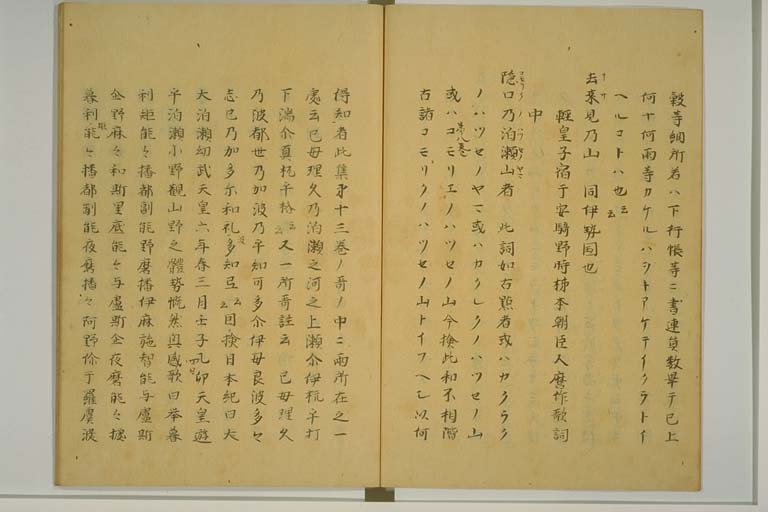 穀等細所若ハ下行帳等ニ書連員数畢テ已上
何十何両等カケルハシトアケテイクラトイ
ヘルコトハ也云云
去来見乃山 同伊勢国也
軽皇子宿于安騎野時柿本朝臣人麿作歌詞
中
隠口乃泊瀬山者 此詞如古點者或ハカクラク
ノハツセノヤマ或ハカクレクノハツセノ山
或ハコモリエノハツセノ山今換此和不相階
古語コモリクノハツセノ山トイフヘシ以何
得知者此集第十三巻ノ哥ノ中ニ両所在之一
處云己母理久乃泊瀬之河之上瀬尒伊杭乎打
下湍尒真杭乎挌云云又一所哥註云己母理久
乃波都世乃加波乃乎知可多尒伊母良波多々
志己乃加多尒和礼波多知弖云云因換日本紀曰大
大泊瀬幼武天皇六年春三月壬子乙卯天皇遊
乎泊瀬小野観山野之體勢慨然興感歌曰挙暮
利矩能々播都制能野磨播伊麻施智能与盧斯
企野麻々和斯里底能々与盧斯企夜磨能々據
暮利能々播都制能夜磨播々阿野你于羅虞波